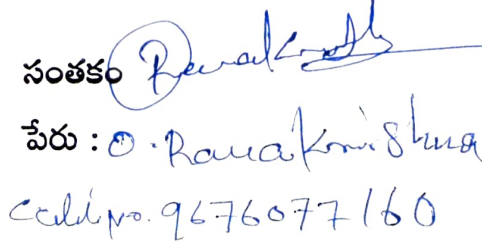 సంతకం
పేరు : O. Ramakrishna
Cell No. 9676077160